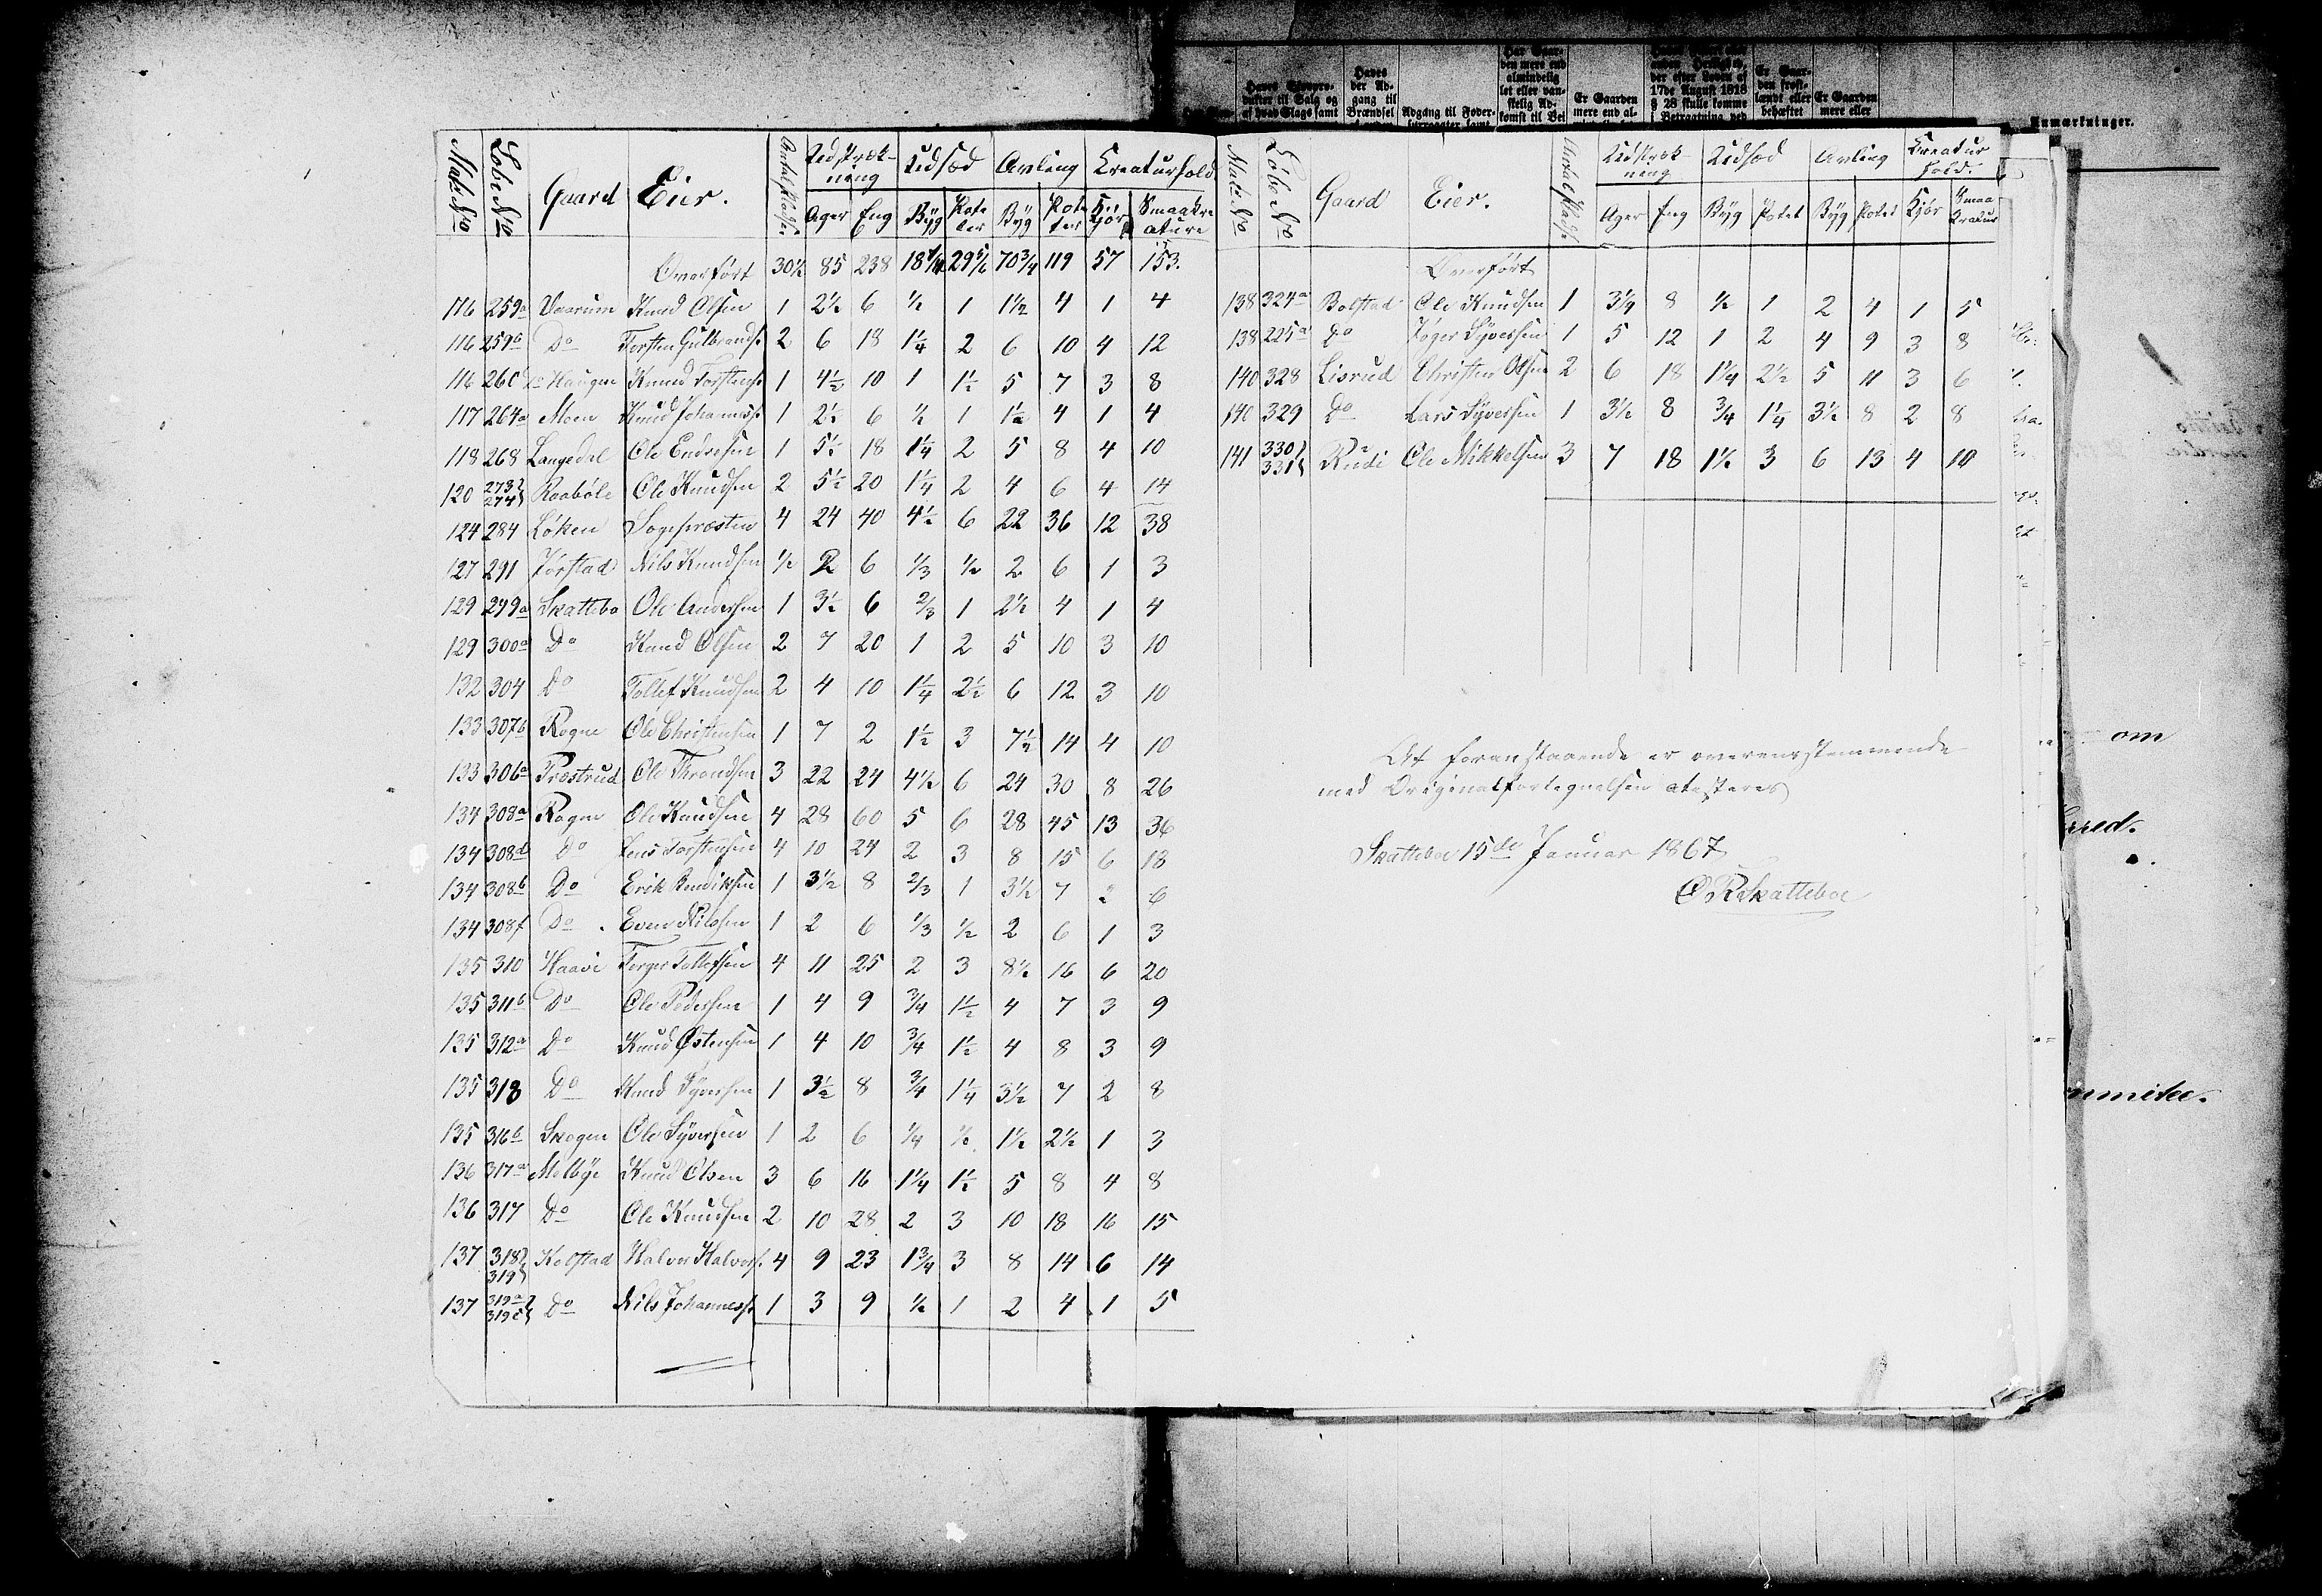 Matr No Løbe No Gaard Eier. Antal Huse Udstrækning Udsæd Avling Kreaturhold
Ager Eng Byg Poteter Byg Poteter Kjør Smaakreature
Overført 30½ 85 238 18¼ 29⅚ 70¾ 119 57 153.
116 259a Vaarum Knud Olsen 1 2½ 6 ½ 1 1½ 4 1 4
116 259b Do Torsten Gulbrands. 2 6 18 1¼ 2 6 10 4 12
116 260 Do Haugen Knud Torstens. 1 4½ 10 1 1½ 5 7 3 8
117 264a Moen Knud Johanness. 1 2½ 6 ½ 1 1½ 4 1 4
118 268 Langedal Ole Endresen 1 5½ 18 1¼ 2 5 8 4 10
120 273 274 Raabøle Ole Knudsen 2 5½ 20 1¼ 2 4 6 4 14
124 284 Løken Sogepræsten 4 24 40 4½ 6 22 36 12 38
127 291 Jørstad Nils Knudsen ½ 2 6 ⅓ ½ 2 6 1 3
129 299a Skattebo Ole Andersen 1 3½ 6 ⅔ 1 2½ 4 1 4
129 300a Do Knud Olsen 2 7 20 1 2 5 10 3 10
132 304 Do Tollef Knudsen 2 4 10 1¼ 2½ 6 12 3 10
133 307b Rogne Ole Christensen 1 7 2 1½ 3 7½ 14 4 10
133 306a Præstrud Ole Throndsen 3 22 24 4½ 6 24 30 8 26
134 308a Rogne Ole Knudsen 4 28 60 5 6 28 45 13 36
134 308d Do Jens Torstensen 4 10 24 2 3 8 15 6 18
134 308b Do Erik Bendiksen 1 3½ 8 ⅔ 1 3½ 7 2 6
134 308f Do Even Nilssen 1 2 6 ⅓ ½ 2 6 1 3
135 310 Haavi Torger Tollefsen 4 11 25 2 3 8½ 16 6 20
135 311b Do Ole Pedersen 1 4 9 ¾ 1½ 4 7 3 9
135 312a Do Knud Østensen 1 4 10 ¾ 1½ 4 8 3 9
135 318 Do Knud Syversen 1 3½ 8 ¾ 1¼ 3½ 7 2 8
135 316b Skogen Ole Syversen 1 2 6 ¼ ½ 1½ 2½ 1 3
136 317a Melbye Knud Olsen 3 6 16 1¼ 1½ 5 8 4 8
136 317 Do Ole Knudsen 2 10 28 2 3 10 18 16 15
137 318 319 Kolstad Halvor Halvors. 4 9 23 1¾ 3 8 14 6 14
137 319a 319c Do Nils Johanness. 1 3 9 ½ 1 2 4 1 5
Haves
der Ad-
gang til
Brændsel
Adgang til Foder-
Har Gaar-
den mere end
almindelig
let eller van-
skelig Ad-
komst til Bei
Er Gaarden
mere end al-
der efter Loven af
17de August 1818
§ 28 skulle komme
i Betragtning ved
Er Gaar-
den frost-
lændt eller
behæftet
Er Gaarden
mere eller
Anmærkninger.
Matr. No Løbe No Gaard Eier. Antal Huse Udstrækning Udsæd Avling Kreaturhold.
Ager Eng Byg Potet Byg Potet Kjør Smaa Kreatur
Overført
138 324a Bolstad Ole Knudsen 1 3¼ 8 ½ 1 2 4 1 5
138 225a Do Jøger Syversen 1 5 12 1 2 4 9 3 8
140 328 Lisrud Christen Olsen 2 6 18 1¼ 2½ 5 11 3 6
140 329 Do Lars Syversen 1 3½ 8 ¾ 1¼ 3½ 8 2 8
141 330 331 Rudi Ole Mikkelsen 3 7 18 1½ 3 6 13 4 10
At foranstaaende er overensstemmende
med Originalfortegnelsen atesteres
Skattebo 15de Januar 1867
O R Skatteboe
om